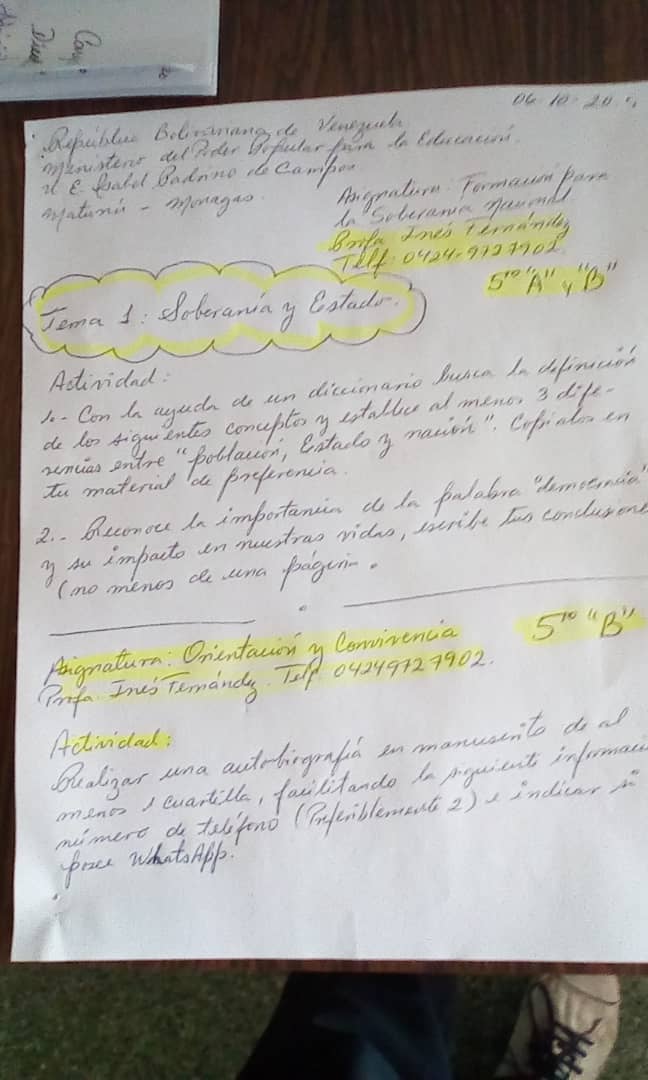 06-10-20
República Bolivariana de Venezuela
Ministerio del Poder Popular para la Educación.
U. E. Isabel Padrino de Campos
Maturín - Monagas.
Asignatura: Formación para
la Soberanía Nacional
Profa Inés Fernández
Telf: 0424-9727902
5to "A" y "B"
Tema 1: Soberanía y Estado.
Actividad:
1.- Con la ayuda de un diccionario busca la definición
de los siguientes conceptos y establece al menos 3 dife-
rencias entre "población, Estado y nación". Copialos en
tu material de preferencia.
2.- Reconoce la importancia de la palabra "democracia"
y su impacto en nuestras vidas, escribe tus conclusione
(no menos de una página.
Asignatura: Orientación y Convivencia
5to "B"
Profa. Inés Fernández. Telf 04249727902.
Actividad:
Realizar una autobiografía en manuscrito de al
menos 1 cuartilla, facilitando la siguiente informaci
número de teléfono (Preferiblemente 2) e indicar si
posee WhatsApp.